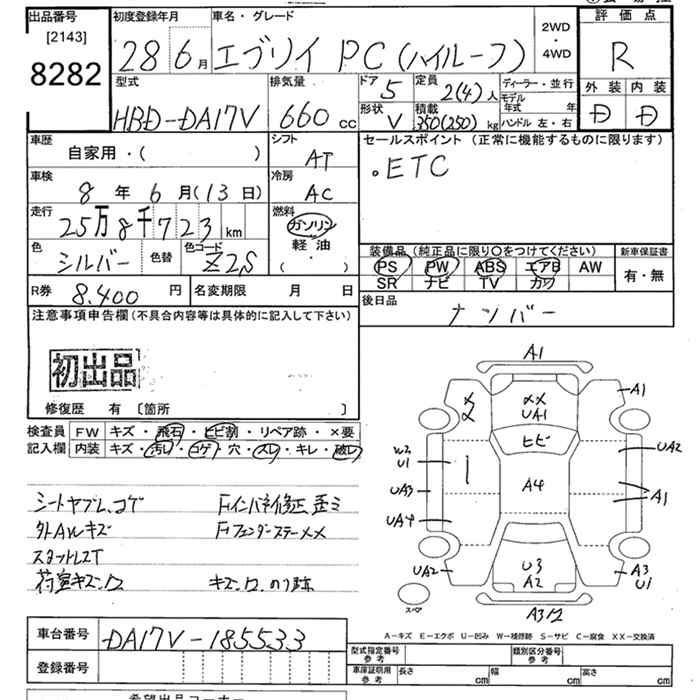 出品番号 [2143] 8282
初度登録年月 28 6月
車名・グレード エブリイ PC(ハイルーフ)
2WD・4WD
評価点 R
外装 D 内装 D
型式 HBD-DA17V
排気量 660 cc
ドア 5
形状 V
定員 2(4)人
積載 350(250)kg
ディーラー・並行
モデル年式 年
ハンドル 左・右
車歴 自家用・( )
シフト AT
セールスポイント(正常に機能するものに限ります)
。ETC
車検 8年 6月(13日)
冷房 AC
走行 25万8千723km
燃料 ガソリン 軽油 ( ・ )
色 シルバー 色替 色コード Z2S
装備品(純正品に限り○をつけてください) 新車保証書
PS PW ABS エアB AW 有・無
SR ナビ TV カワ
R券 8.400円 名変期限 月 日
後日品 ナンバー
注意事項申告欄(不具合内容等は具体的に記入して下さい)
初出品
修復歴 有 [箇所 ]
検査員記入欄 FW キズ・飛石・ヒビ割・リペア跡・×要
内装 キズ・汚レ・コゲ・穴・スレ・キレ・破レ
シートヤブレ、コゲ Fインパネ修正、歪ミ
外AWキズ
スタットレスT
荷室キズ、
A1
A1
XX
XX UA1
ヒビ
W2 U1
UA2
UA3
A4
A1
UA4
UA2
U3 A2
A3 U1
スペア
A-キズ E-エクボ U-凹み W-補修跡 S-サビ C-腐食 XX-交換済
車台番号 DA17V-185533
登録番号
型式指定番号 参考 類別区分番号 参考
車庫証明用 参考 長さ cm 幅 cm 高さ cm
希望出品コーナー